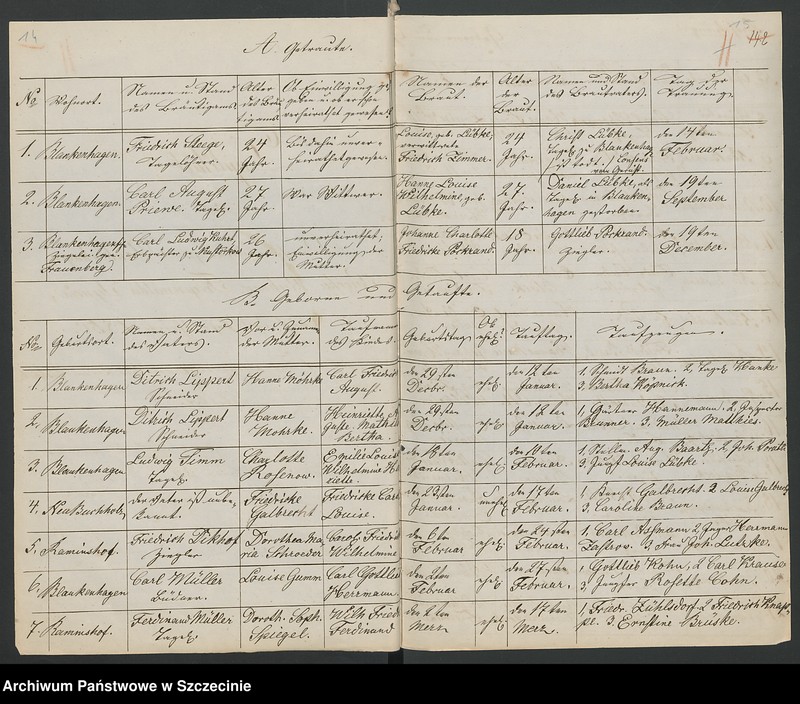 14
15
142
A. Getraute.
No Wohnort. Namen u. Stand des Bräutigams Alter des Bräutigams Ob Einwilligung gegeben u. ob er schon verheirathet gewesen. Namen der Braut. Alter der Braut. Namen und Stand des Brautvaters. Tag der Trauung.
1. Blankenhagen. Friedrich Steege, Tagelöhner. 24 Jahr. bis dahin unverheirathet gewesen. Louise, geb. Lübke, verwittwete Friedrich Zimmer. 24 Jahr. Christ. Lübke, Tagel. zu Blankenhag. ist todt. den 14ten Februar.
2. Blankenhagen. Carl August Priewe. Tagel. 27 Jahr. War Wittwer. Hanne Louise Wilhelmine, geb. Lübke. 27 Jahr. Daniel Lübke, als Tagel. in Blankenhagen gestorben. den 19ten September
3. Blankenhagen Ziegelei Frauenberg. Carl Ludwig Kuhrt, 26 Jahr. unverheirathet; Einwilligung der Mutter. Johanne Charlotte Friedricke Pockrand. 18 Jahr. Gottlieb Pockrand. Ziegler. den 19ten December.
B. Geborne und Getaufte.
No Geburtsort. Namen u. Stand des Vaters. Vor u. Zuname der Mutter. Taufname des Kindes. Geburtstag Ob ehel.? Tauftag. Taufzeugen.
1. Blankenhagen Ditrich Lippert Schneider Hanne Möhrke Carl Friedrich August. den 29sten Decbr. ehel. den 12ten Januar. 1, Schmidt Braun. 2, Tagel. Hanke 3, Bertha Köpnick.
2, Blankenhagen Ditrich Lippert Schneider Hanne Mohrke. Heinriette Bertha. den 29sten Decbr. ehel. den 12ten Januar. 1, Gärtner Hannemann. 2, Inspector Brunner. 3, Müller Matthies.
3, Blankenhagen Ludwig Timm Tagel. Charlotte Rosenow. Emilie Louise Wilhelmine den 18ten Januar. ehel. den 10ten Februar. 1, Stellm. Aug. Baartz. 2, Joh. 3, Jungf. Louise Lübke.
4. Neu Buchholz der Vater ist unbekannt. Friedricke Galbrecht Friedricke Carl. Louise. den 23sten Januar. unehel. den 17ten Februar. 1, Galbrecht. 2. Louise Galbrecht 3, Caroline Braun.
5, Raminshof. Friedrich Dickhof Ziegler Dorothea Maria Schroeder Carol. Friedrick Wilhelmine den 6ten Februar ehel. den 24sten Februar. 1, Carl Assmann 2, Jäger Herrmann Zastrow. 3, Frau Joh. Lutzke.
6, Blankenhagen Carl Müller Büdner. Louise Gumm Carl Gottlieb Herrmann. den 2ten Februar ehel. den 27sten Februar. 1, Gottlieb Kohn, 2, Carl Krause 3, Jungfer Rosette Cohn.
7, Raminshof. Ferdinand Müller Tagel. Doroth. Soph. Spiegel. Wilh. Fried. Ferdinand den 2ten Merz ehel. den 17ten Merz. 1, Friedr. Zühlsdorf 2, Friedrich Knappe. 3, Ernstine Brüske.
Archiwum Państwowe w Szczecinie